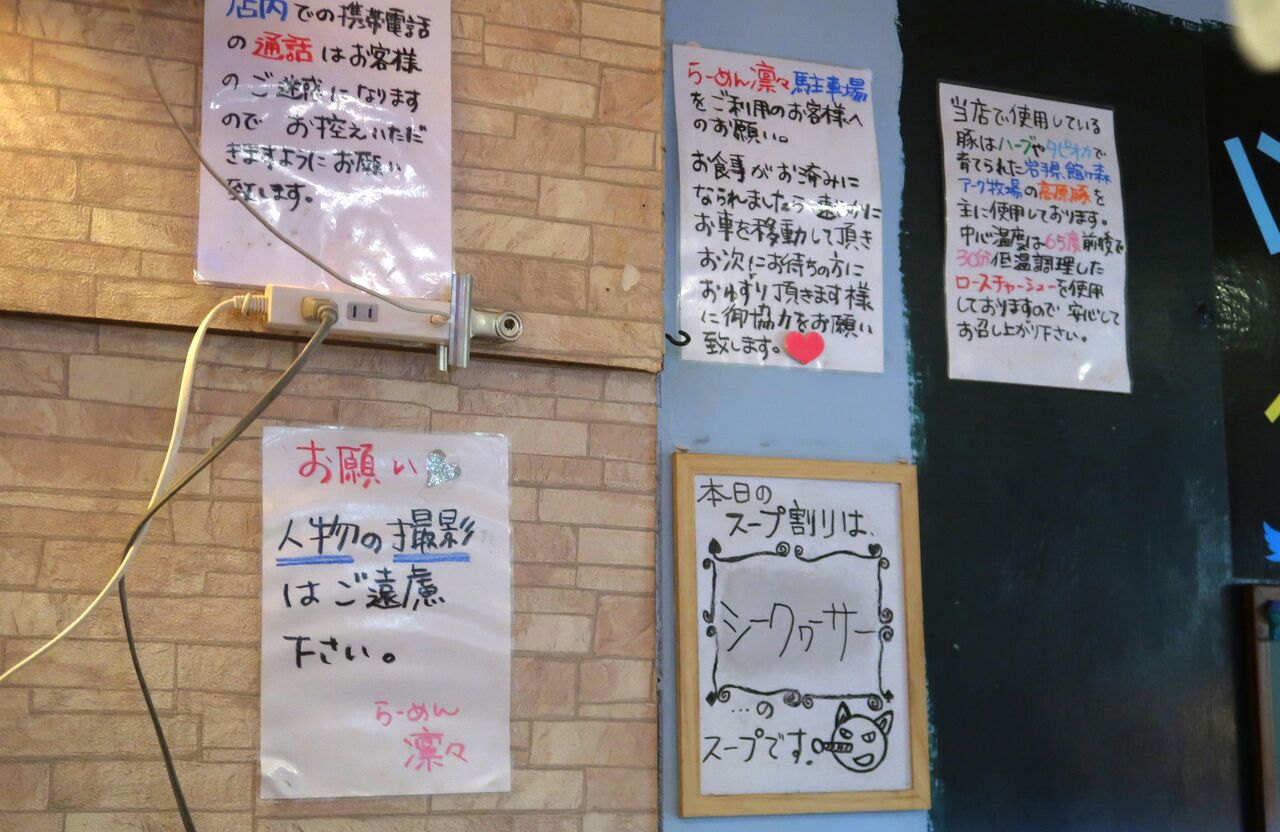 店内での携帯電話
の通話はお客様
のご迷惑になります
ので お控えいただ
きますようにお願い
致します。
お願い
人物の撮影
はご遠慮
下さい。
らーめん
凛々
らーめん凛々駐車場
をご利用のお客様へ
のお願い。
お食事がお済みに
なられましたら速やかに
お車を移動して頂き
お次にお待ちの方に
おゆずり頂きます様
に御協力をお願い
致します。
本日の
スープ割りは、
シークヮーサー
…の
スープです!
当店で使用している
豚はハーブやタピオカで
育てられた岩手県、館ヶ森
アーク牧場の高原豚を
主に使用しております。
中心温度は65度前後で
30分低温調理した
ロースチャーシューを使用
しておりますので 安心して
お召し上がり下さい。